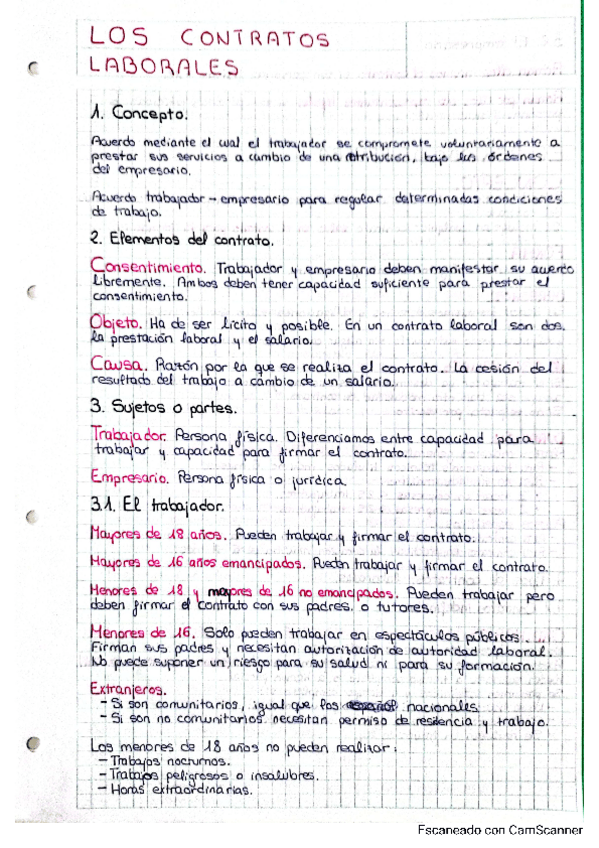 LOS CONTRATOS
LABORALES
1. Concepto.
Acuerdo mediante el cual el trabajador se compromete voluntariamente a
prestar sus servicios a cambio de una retribución, bajo las órdenes
del empresario.
Acuerdo trabajador - empresario para regular determinadas condiciones
de trabajo.
2. Elementos del contrato.
Consentimiento. Trabajador y empresario deben manifestar su acuerdo
libremente. Ambos deben tener capacidad suficiente para prestar el
consentimiento.
Objeto. Ha de ser lícito y posible. En un contrato laboral son dos,
la prestación laboral y el salario.
Causa. Razón por la que se realiza el contrato. La cesión del
resultado del trabajo a cambio de un salario.
3. Sujetos o partes.
Trabajador. Persona física. Diferenciamos entre capacidad para
trabajar y capacidad para firmar el contrato.
Empresario. Persona física o jurídica.
3.1. El trabajador.
Mayores de 18 años. Pueden trabajar y firmar el contrato.
Mayores de 16 años emancipados. Pueden trabajar y firmar el contrato.
Menores de 18 y mayores de 16 no emancipados. Pueden trabajar pero
deben firmar el contrato con sus padres o tutores.
Menores de 16. Solo pueden trabajar en espectáculos públicos.
Firman sus padres y necesitan autorización de autoridad laboral.
No puede suponer un riesgo para su salud ni para su formación.
Extranjeros.
- Si son comunitarios, igual que los nacionales
- Si son no comunitarios necesitan permiso de residencia y trabajo.
Los menores de 18 años no pueden realizar:
- Trabajos nocturnos.
- Trabajos peligrosos o insalubres.
- Horas extraordinarias.
Escaneado con CamScanner